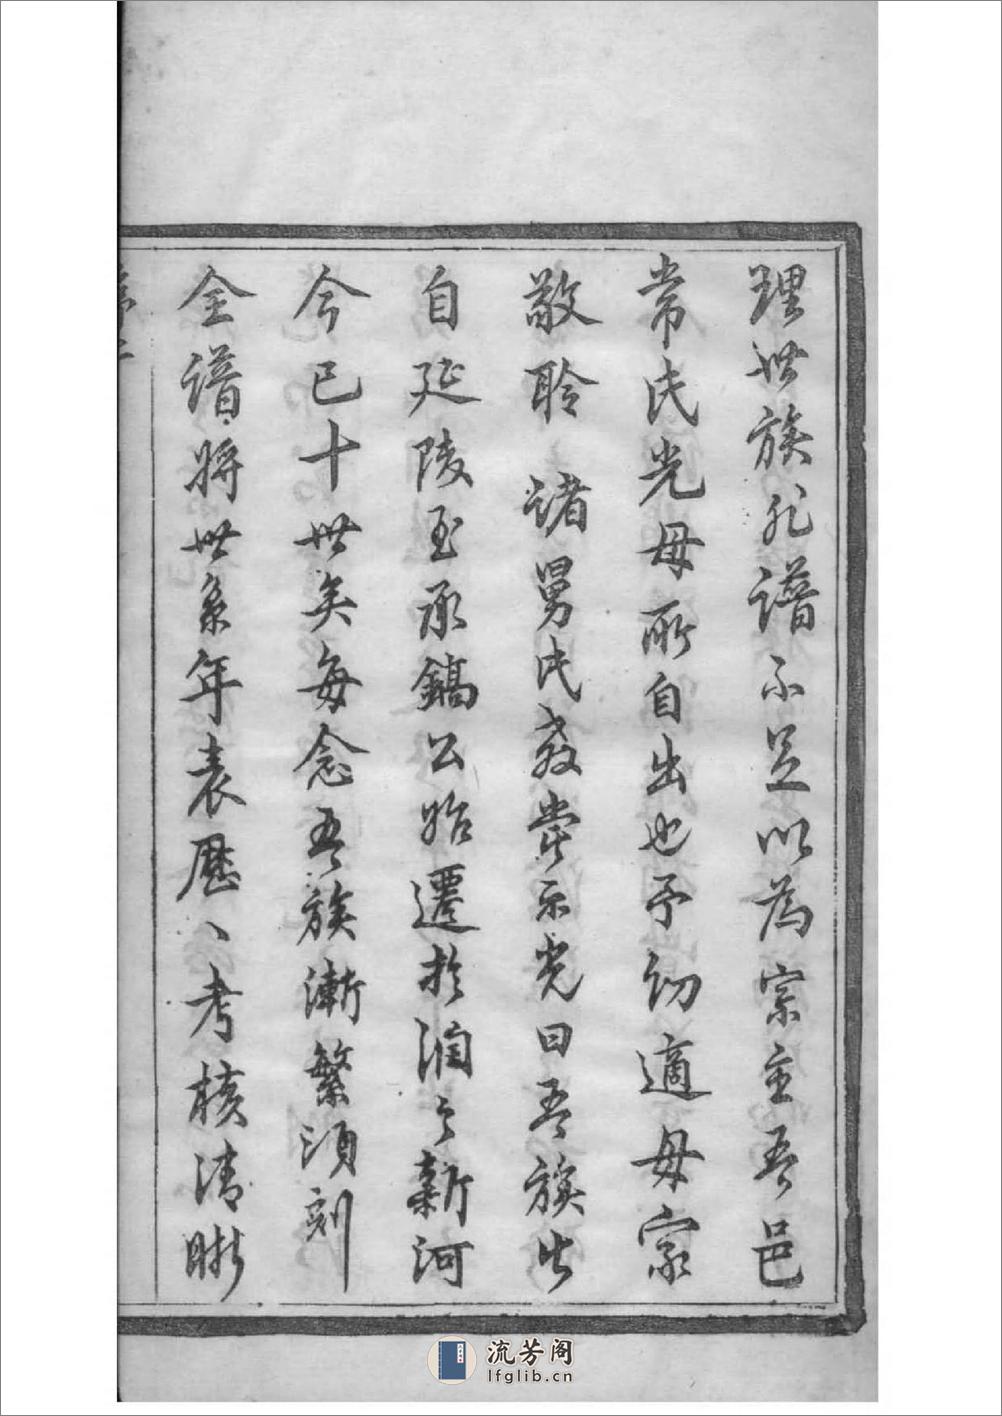 理世族非譜不足以為宗主吾邑
常氏光母所自出也予幼適母家
敬聆諸舅氏教嘗示光曰吾族出
自延陵至承鎬公始遷於潤之新河
今已十世矣每念吾族漸繁須刻
全譜將世系年表歷、考核清晰
序二
流芳阁
lfglib.cn